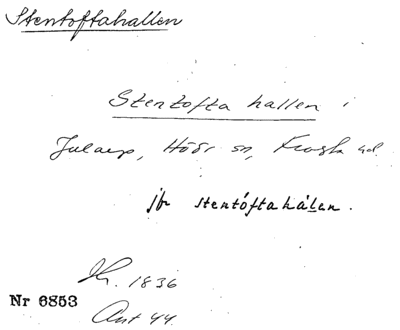 Stentoftahallen
Stentofta hallen i
Jularp, Höör sn, Frosta hd.
jfr stentóftahálen.
1836
Nr 6853
Ant 44